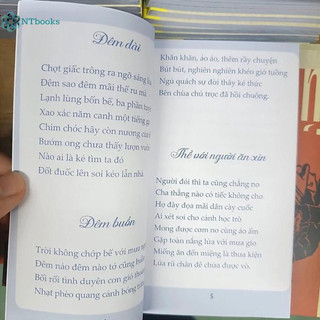 NTbooks
Đêm dài
Chợt giấc trông ra ngõ sáng
Đêm sao đêm mãi thế ru mà
Lạnh lùng bốn bể, ba phần
Xao xác năm canh một tiếng
Chim chóc hãy còn nương
Bướm ong chưa thấy lượn
Nào ai là kẻ tìm ta đó
Đốt đuốc lên soi kẻo lẫn nhà.
Đêm buồn
Trời không chớp bể với mưa
Đêm nào đêm nảo tớ cũng
Bối rối tình duyên cơn gió
Nhạt phèo quang cảnh bóng
Khăn khăn, áo áo, thêm rầy chuyện
Bút bút, nghiên nghiên khéo giở tuồng
Ngủ quách sự đời thây kẻ thức
Bên chùa chú trọc đã hồi chuông.
Thề với người ăn xin
Người đói thì ta cũng chẳng no
Cha thằng nào có tiếc không cho
Họ đày đọa mãi dân cày cuốc
Ai xét soi cho cảnh học trò
Mong được cơm no cùng áo ấm
Gặp toàn nắng lửa với mưa gio
Miếng ăn đến miệng là thưa kiện
Lúa rũ chân đê chửa được vò.
5